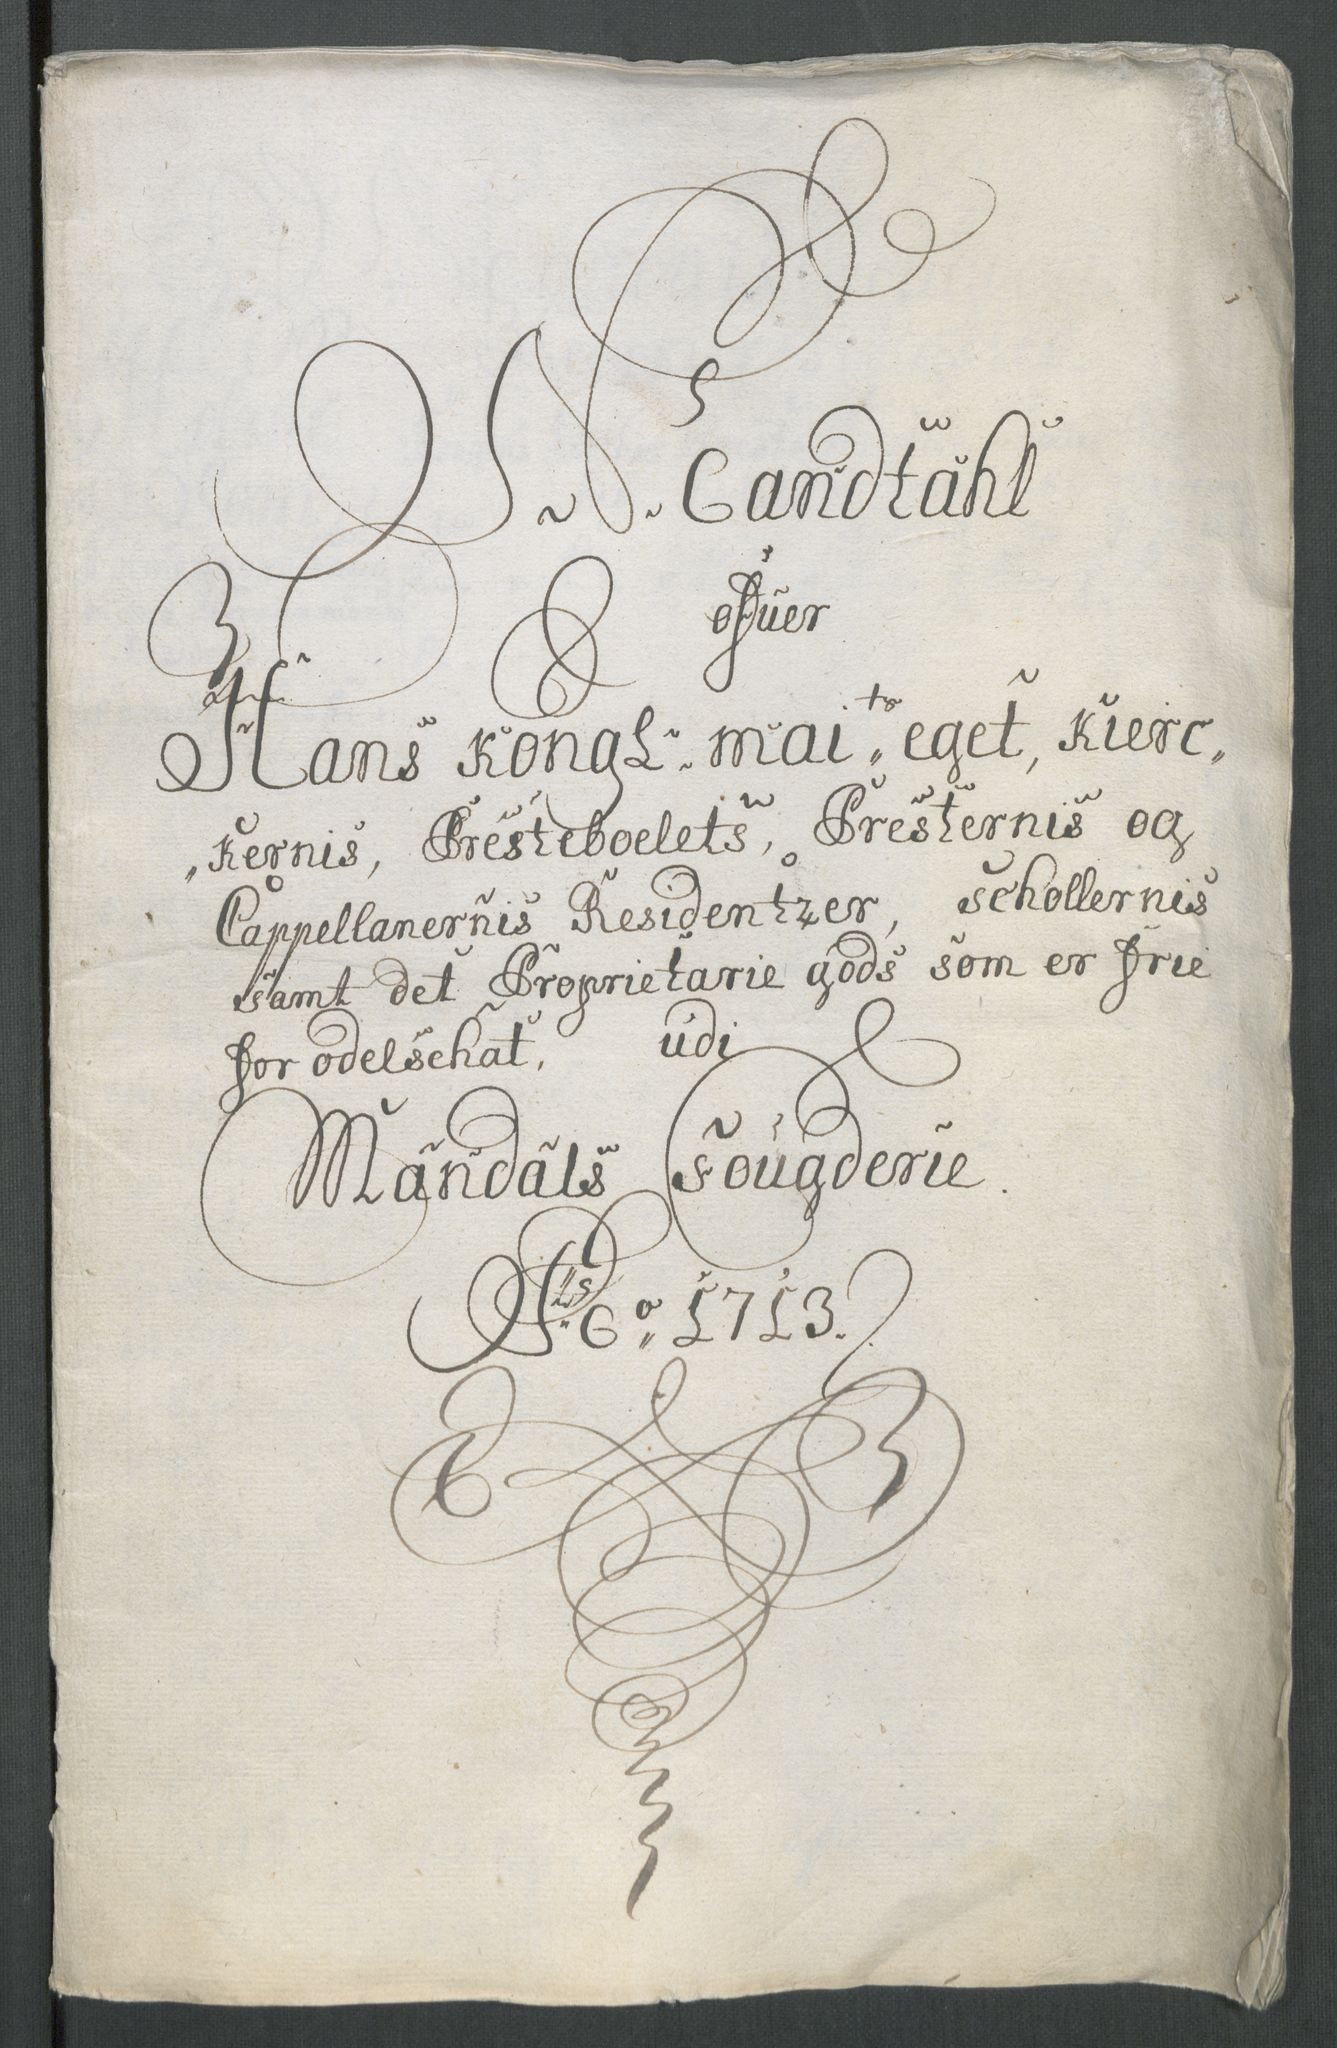 N. Mandtahl
ofuer
Hans Kongl. mai.ts eget, Kierc„
„kernis, Presteboelets, Presternis og
Cappellanernis Residentzer, Schollernis
samt det Proprietarie gods som er frie
for odelschat, udi
Mandals fougderie.
1713.